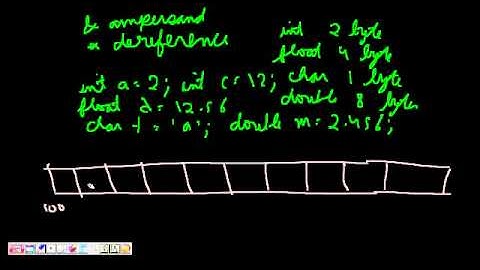 & ampersand
* dereference
int 2 byte
float 4 byte
int a=2; int c=12; char 1 byte
float d=12.56 double 8 bytes
char t='a'; double m=2.456;
a
100